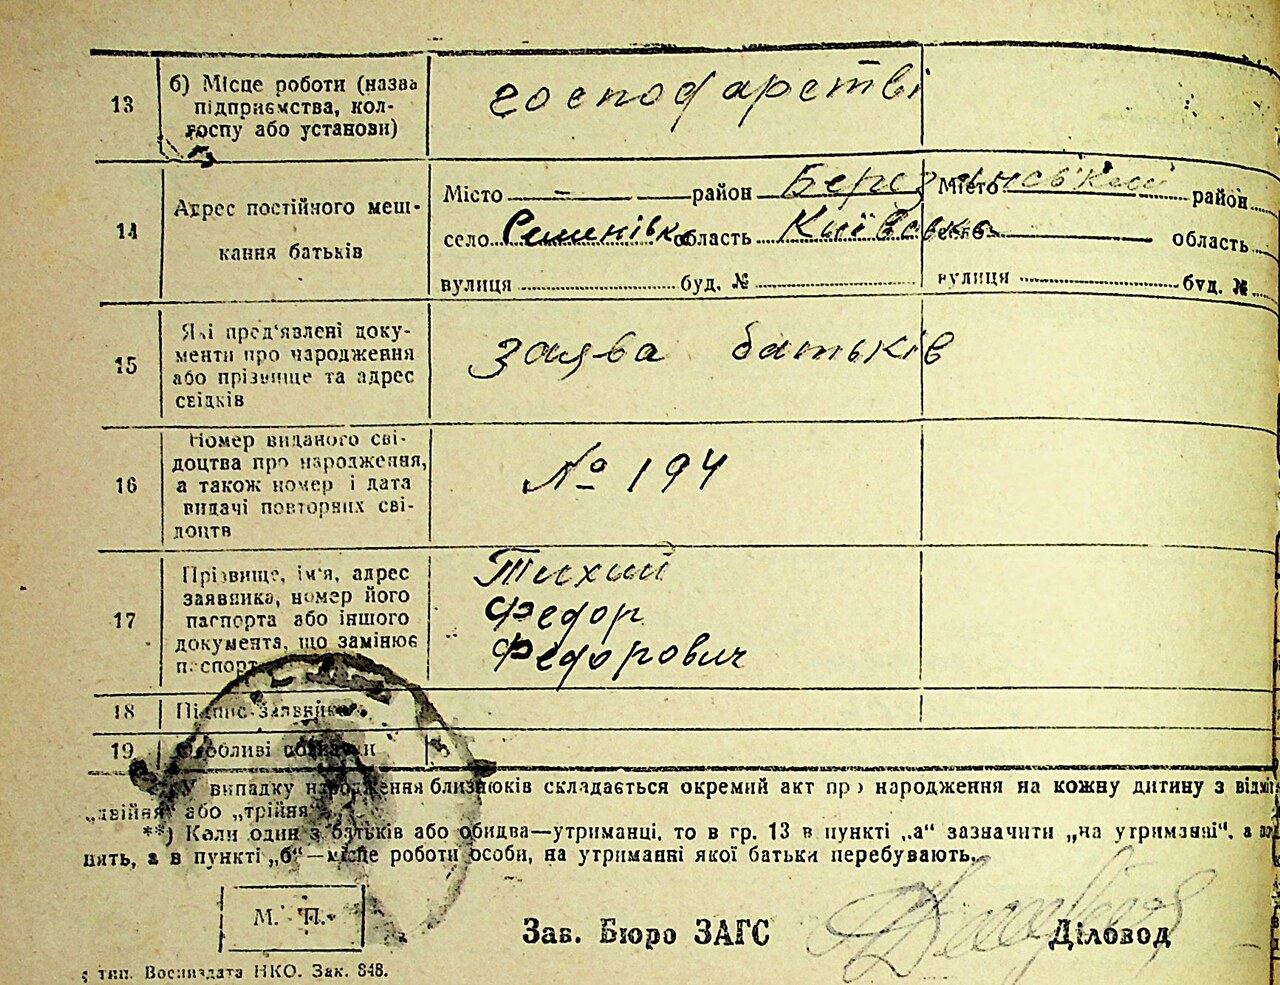 13 б) Місце роботи (назва підприємства, колгоспу або установи) господарстві
14 Адрес постійного мешкання батьків
Місто — район Березанський Місто район
село Семенівка область Київська село область
вулиця буд. № вулиця буд. №
15 Які пред'явлені документи про народження або прізвище та адрес свідків заява батьків
16 Номер виданого свідоцтва про народження, а також номер і дата видачі повторних свідоцтв № 194
17 Прізвище, ім'я, адрес заявника, номер його паспорта або іншого документа, що замінює паспорт
Тихий
Федор
Федорович
18 Підпис заявника
19 Особливі
У випадку народження близнюків складається окремий акт про народження на кожну дитину з відміт
„двійня" або „трійня"
**) Коли один з батьків або обидва—утриманці, то в гр. 13 в пункті „а" зазначити „на утриманні", а
нять, а в пункті „б"—місце роботи особи, на утриманні якої батьки перебувають.
М. П.
Зав. Бюро ЗАГС Діловод
тип. Воениздата НКО. Зак. 848.